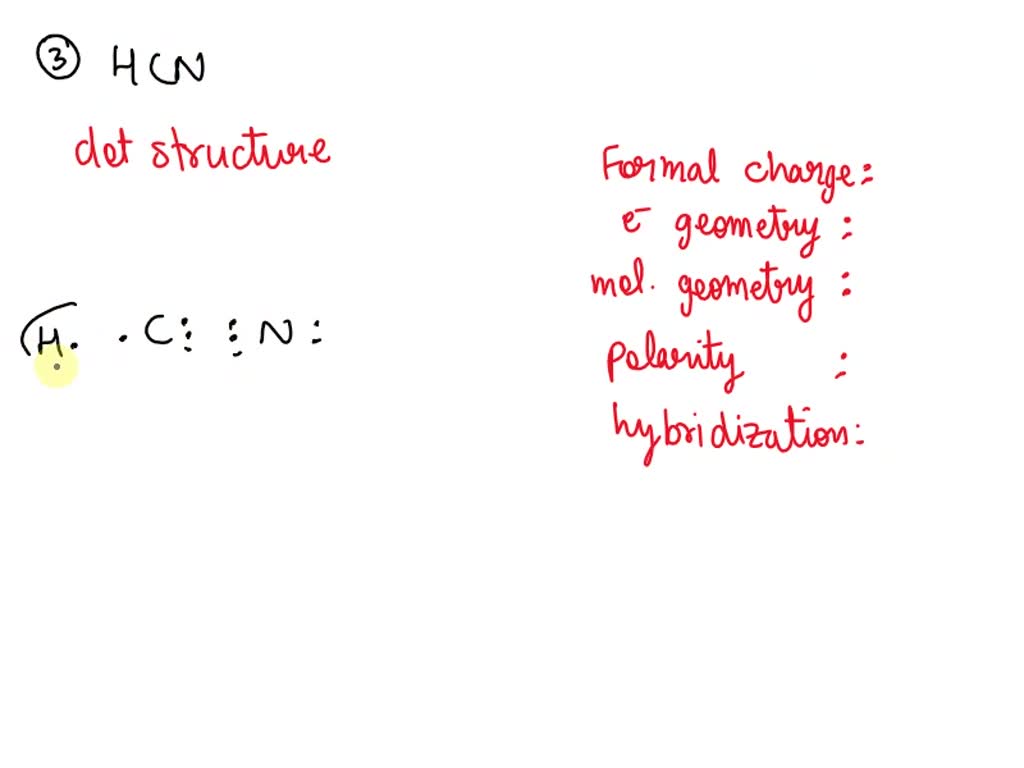 ③ HCN
dot structure
Formal charge:
e⁻ geometry :
mol. geometry :
Polarity :
hybridization:
H. .C⋮ ⋮N: